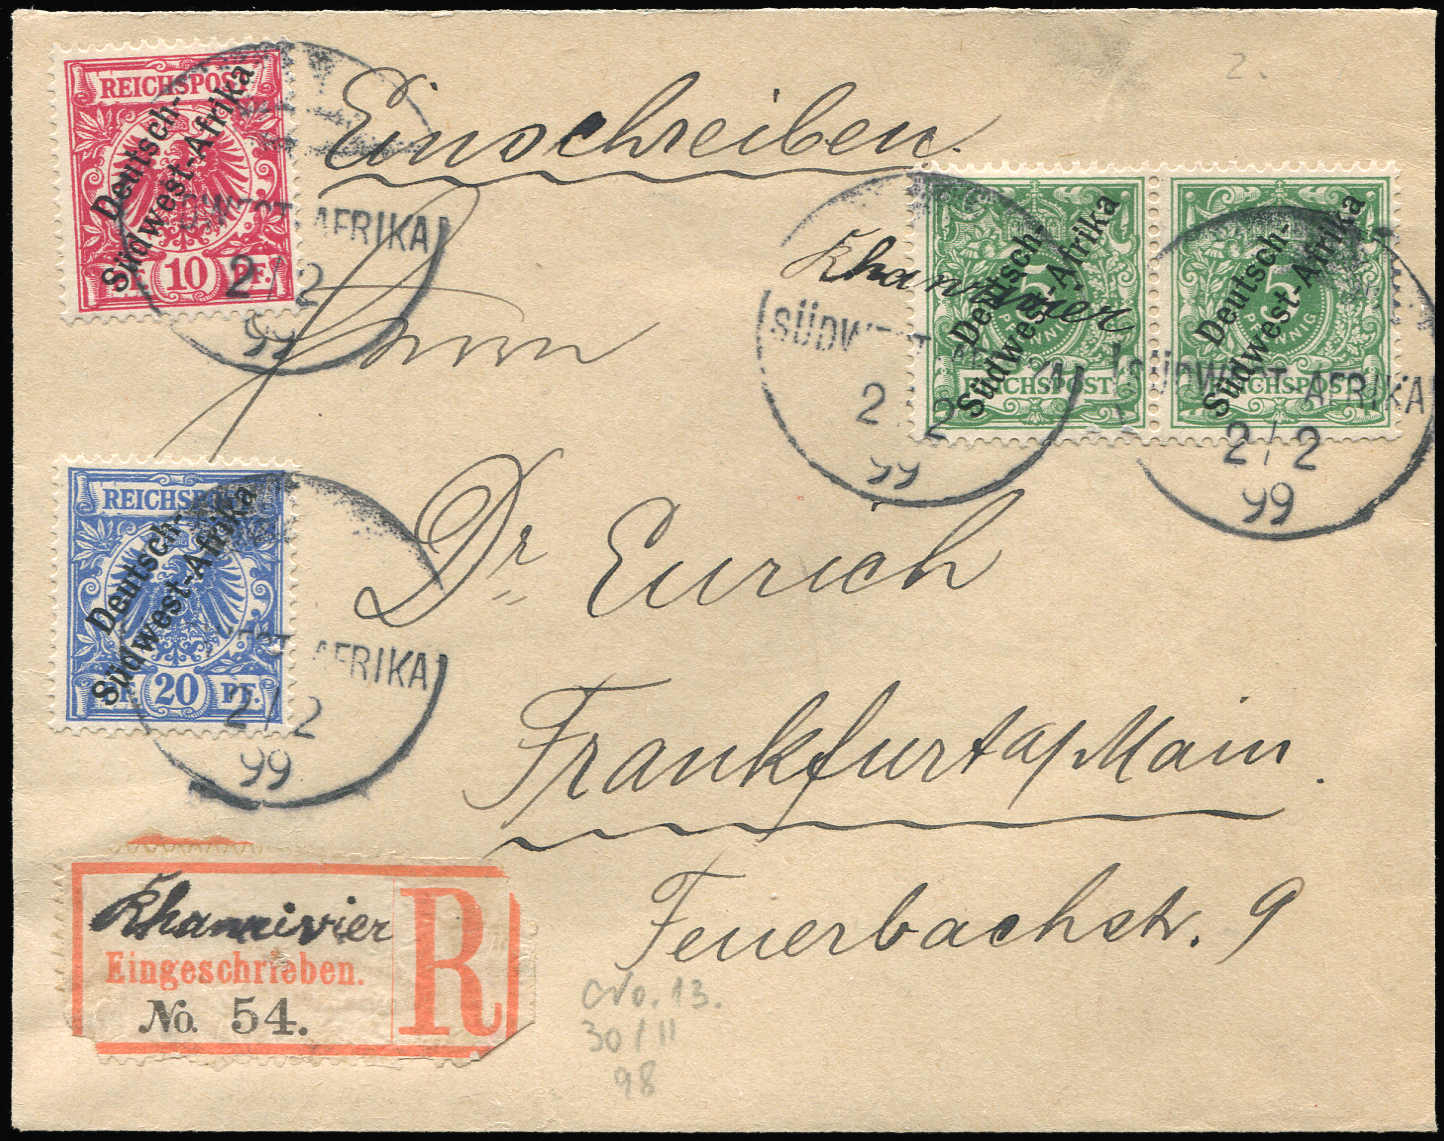 2.
REICHSPOST
Deutsch-
Südwest-Afrika
10 PF.
AFRIKA
2/2
99
Einschreiben.
Herrn
Khannivier
Deutsch-
Südwest-Afrika
5
PFENNIG
REICHSPOST
SÜDWEST
2/2
99
Deutsch-
Südwest-Afrika
5
PFENNIG
REICHSPOST
SÜDWEST-AFRIKA
2/2
99
REICHSPOST
Deutsch-
Südwest-Afrika
20 PF.
AFRIKA
2/2
99
Dr. Eurich
Frankfurt a/Main.
Feuerbachstr. 9
Khannivier
Eingeschrieben.
No. 54.
R
No. 13.
30/11
98